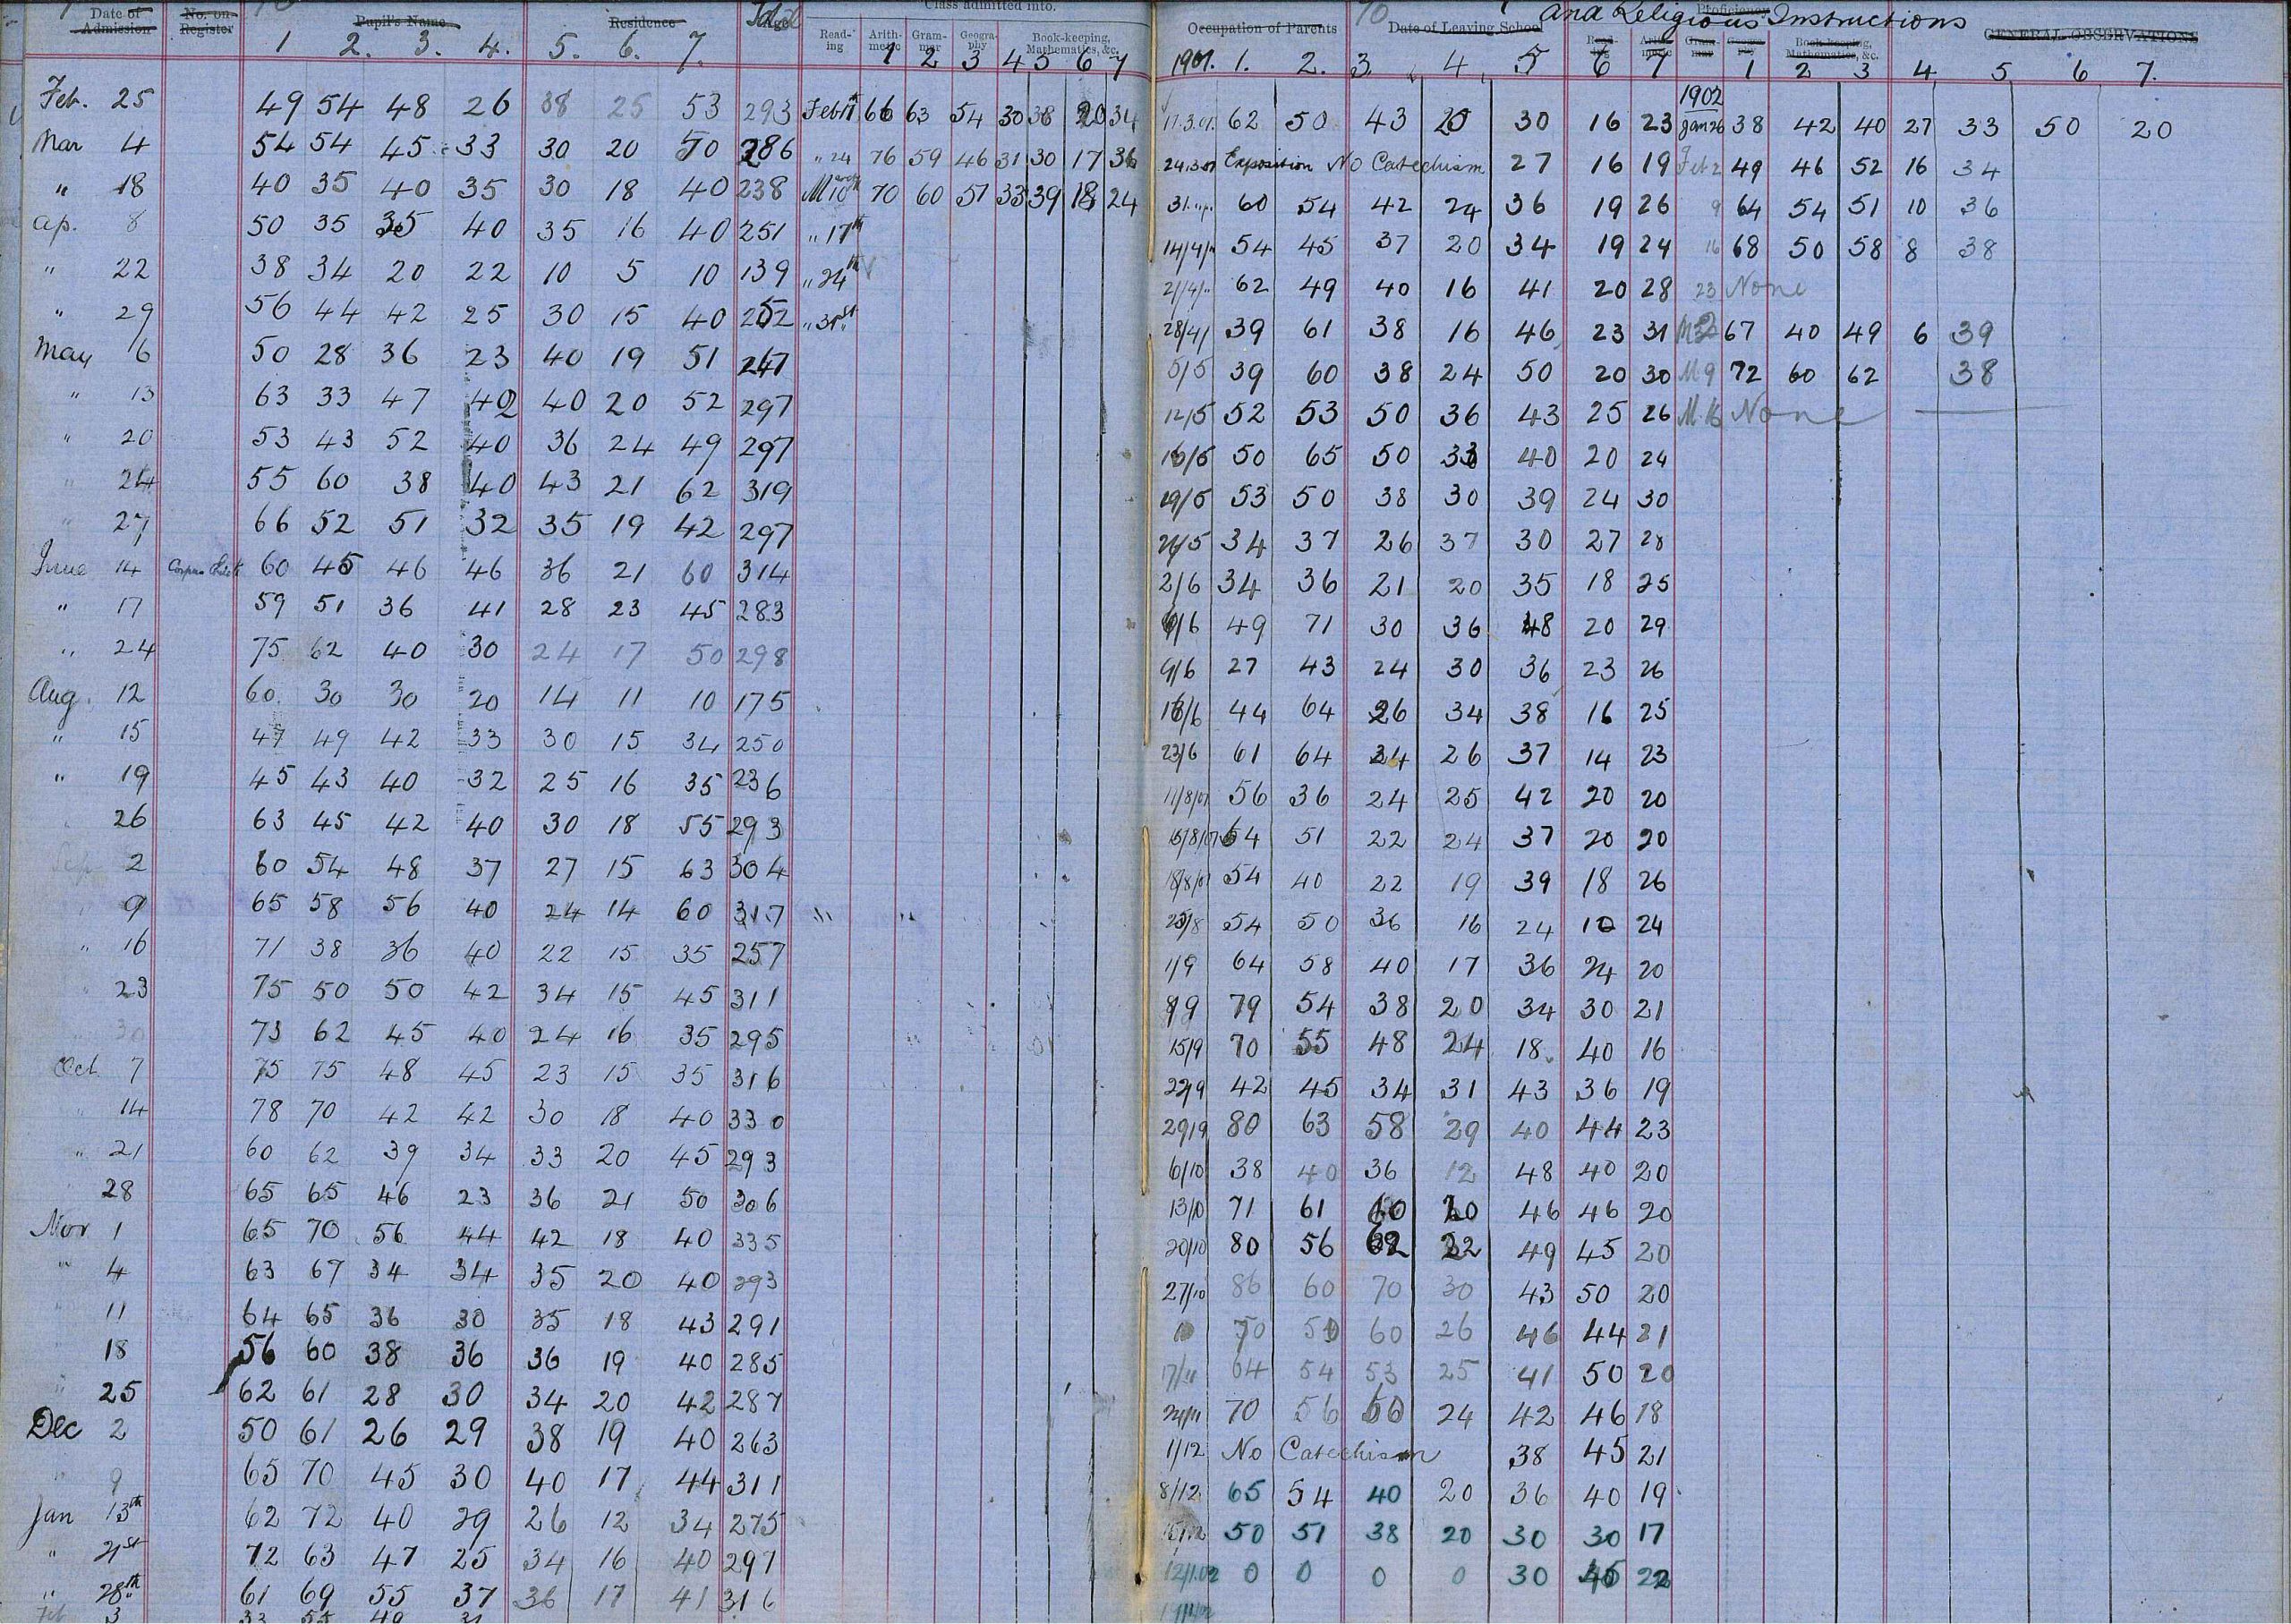 Date of Admission No. on Register Pupil's Name Residence Total Class admitted into.
Read-ing Arith-metic Gram-mar Geogra-phy Book-keeping, Mathematics, &c.
1 2. 3. 4. 5. 6. 7. 1 2 3 4 5 6 7
Feb. 25 49 54 48 26 38 25 53 293 Feb 17 66 63 54 30 38 20 34
Mar 4 54 54 45 33 30 20 50 286 " 24 76 59 46 31 30 17 36
" 18 40 35 40 35 30 18 40 238 March 10th 70 60 51 33 39 18 24
Ap. 8 50 35 35 40 35 16 40 251 " 17th
" 22 38 34 20 22 10 5 10 139 " 24th
" 29 56 44 42 25 30 15 40 252 " 31st
May 6 50 28 36 23 40 19 51 247
" 13 63 33 47 42 40 20 52 297
" 20 53 43 52 40 36 24 49 297
" 24 55 60 38 40 43 21 62 319
" 27 66 52 51 32 35 19 42 297
June 14 Corpus Christi 60 45 46 46 36 21 60 314
" 17 59 51 36 41 28 23 45 283
" 24 75 62 40 30 24 17 50 298
Aug. 12 60 30 30 20 14 11 10 175
" 15 47 49 42 33 30 15 34 250
" 19 45 43 40 32 25 16 35 236
26 63 45 42 40 30 18 55 293
Sep 2 60 54 48 37 27 15 63 304
" 9 65 58 56 40 24 14 60 317
" 16 71 38 36 40 22 15 35 257
" 23 75 50 50 42 34 15 45 311
" 30 73 62 45 40 24 16 35 295
Oct 7 75 75 48 45 23 15 35 316
" 14 78 70 42 42 30 18 40 330
" 21 60 62 39 34 33 20 45 293
28 65 65 46 23 36 21 50 306
Nov 1 65 70 56 44 42 18 40 335
" 4 63 67 34 34 35 20 40 293
" 11 64 65 36 30 35 18 43 291
18 56 60 38 36 36 19 40 285
" 25 62 61 28 30 34 20 42 287
Dec 2 50 61 26 29 38 19 40 263
" 9 65 70 45 30 40 17 44 311
Jan 13th 62 72 40 29 26 12 34 275
" 21st 72 63 47 25 34 16 40 297
" 28th 61 69 55 37 36 17 41 316
Feb 3 33 55 49 31
and Religious Instructions
Occupation of Parents 70 Date of Leaving School Proficiency GENERAL OBSERVATIONS
Read-ing Arith-metic Gram-mar Geogra-phy Book-keeping, Mathematics, &c.
1901. 1. 2. 3. 4. 5 6 7 1 2 3 4 5 6 7.
1902
17.3.01. 62 50 43 25 30 16 23 Jan 26 38 42 40 27 33 50 20
24.3.01 Exposition No Catechism 27 16 19 Feb 2 49 46 52 16 34
31. " 60 54 42 24 36 19 26 9 64 54 51 10 36
14/4/ 54 45 37 20 34 19 24 16 68 50 58 8 38
21/4/ 62 49 40 16 41 20 28 23 None
28/4/ 39 61 38 16 46 23 31 M 2 67 40 49 6 39
5/5 39 60 38 24 50 20 30 M 9 72 60 62 38
12/5 52 53 50 36 43 25 26 M. 16 None
16/5 50 65 50 33 40 20 24
19/5 53 50 38 30 39 24 30
26/5 34 37 26 37 30 27 28
2/6 34 36 21 20 35 18 25
6/6 49 71 30 36 48 20 29
9/6 27 43 24 30 36 23 26
16/6 44 64 26 34 38 16 25
23/6 61 64 24 26 37 14 23
11/8/01 56 36 24 25 42 20 20
15/8/01 54 51 22 24 37 20 20
18/8/01 54 40 22 19 39 18 26
25/8 54 50 36 16 24 10 24
1/9 64 58 40 17 36 24 20
8/9 79 54 38 20 34 30 21
15/9 70 55 48 24 18 40 16
22/9 42 45 34 31 43 36 19
29/9 80 63 58 29 40 44 23
6/10 38 40 36 12 48 40 20
13/10 71 61 60 20 46 46 20
20/10 80 56 62 22 49 45 20
27/10 86 60 70 30 43 50 20
70 50 60 26 46 44 21
17/11 64 54 53 25 41 50 20
24/11 70 56 50 24 42 46 18
1/12 No Catechism 38 45 21
8/12 65 54 40 20 36 40 19
15/12 50 51 38 20 30 30 17
12/1.02 0 0 0 0 30 45 22